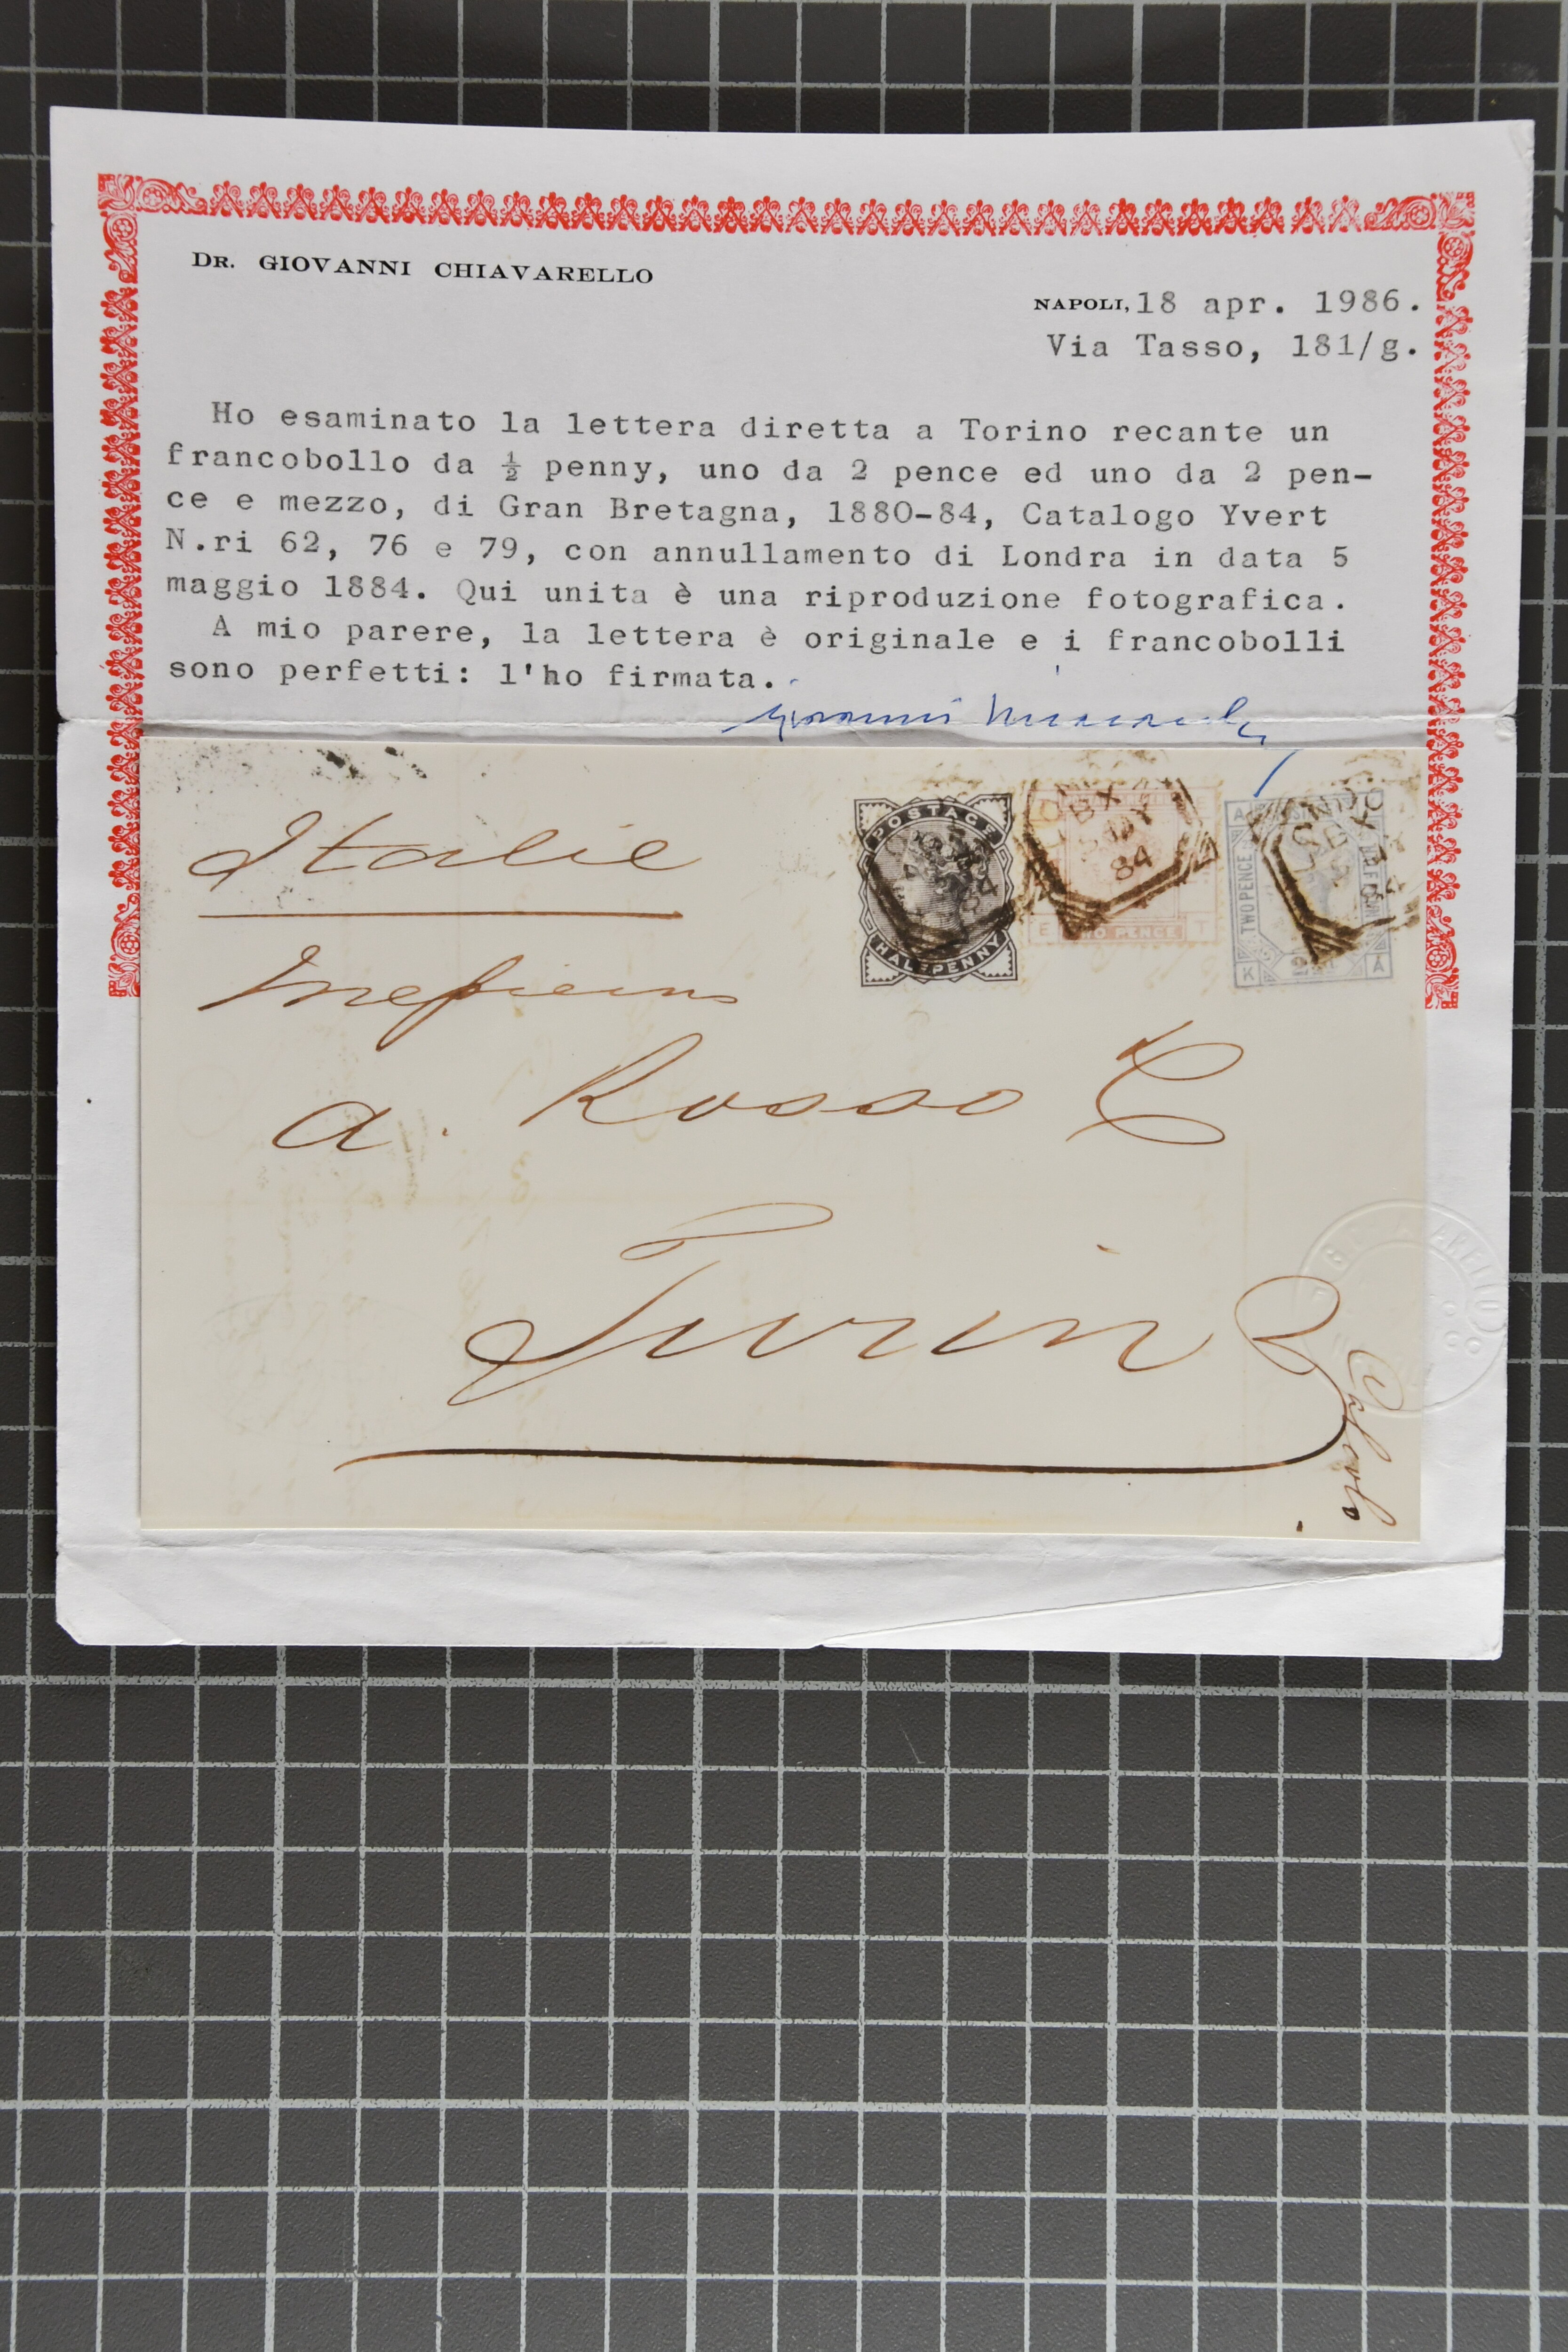 DR. GIOVANNI CHIAVARELLO
NAPOLI, 18 apr. 1986.
Via Tasso, 181/g.
Ho esaminato la lettera diretta a Torino recante un
francobollo da ½ penny, uno da 2 pence ed uno da 2 pen-
ce e mezzo, di Gran Bretagna, 1880-84, Catalogo Yvert
N.ri 62, 76 e 79, con annullamento di Londra in data 5
maggio 1884. Qui unita è una riproduzione fotografica.
A mio parere, la lettera è originale e i francobolli
sono perfetti: l'ho firmata.
POSTAGE
HALFPENNY
BX
5 MY
84
E TWO PENCE T
A
TWO PENCE
K A
Italie
a. Rosso C
Turin